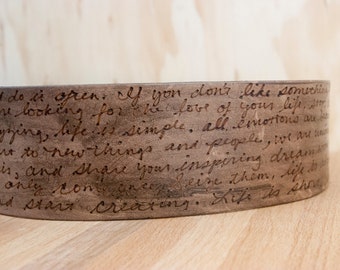 do is open. If you don't like something
looking for the love of your life, 
life is simple. all emotions are
to new things and people, we are
and share your inspiring dream
only come once, seize them, life
and start creating. Life is short